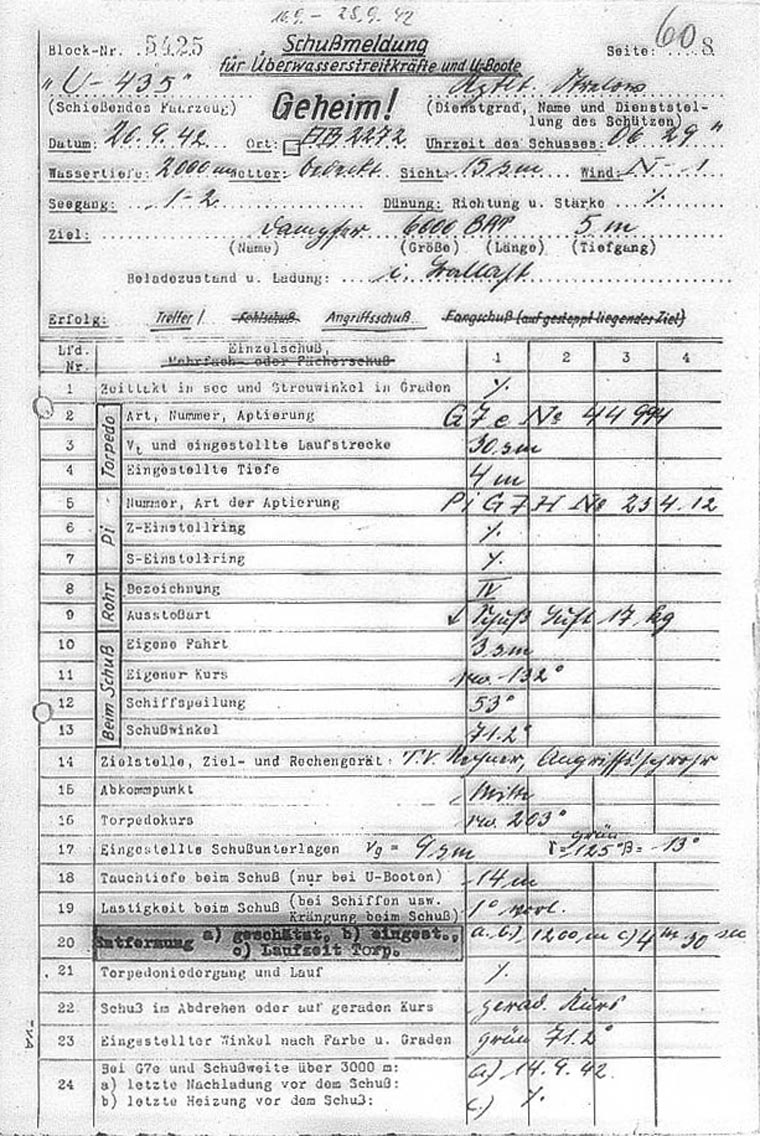 16.9. - 28.9. 42
Block-Nr. 5425 Schußmeldung Seite: 60 8
für Überwasserstreitkräfte und U-Boote
"U-435" Kptlt. Strelow
(Schießendes Fahrzeug) Geheim! (Dienstgrad, Name und Dienststel-
lung des Schützen)
Datum: 20.9.42. Ort: □ AB 2272 Uhrzeit des Schusses: 06 29"
Wassertiefe: 2000 m Wetter: bedeckt Sicht: 15 sm Wind: N-1
Seegang: 1-2 Dünung: Richtung u. Stärke ./.
Ziel: Dampfer 6000 BRT 5 m
(Name) (Größe) (Länge) (Tiefgang)
Beladezustand u. Ladung: i. Ballast
Erfolg: Treffer / Fehlschuß Angriffsschuß Fangschuß (auf gestoppt liegendes Ziel)
Lfd. Nr. Einzelschuß, 1 2 3 4
Mehrfach- oder Fächerschuß
1 Zeittakt in sec und Streuwinkel in Graden ./.
Torpedo
2 Art, Nummer, Aptierung G7e No 44994
3 Vt und eingestellte Laufstrecke 30 sm
4 Eingestellte Tiefe 4 m
Pi
5 Nummer, Art der Aptierung Pi G7H No 234.12
6 Z-Einstellring ./.
7 S-Einstellring ./.
Rohr
8 Bezeichnung IV
9 Ausstoßart Schuß Luft 17 kg
Beim Schuß
10 Eigene Fahrt 3 sm
11 Eigener Kurs rw. 132°
12 Schiffspeilung 53°
13 Schußwinkel 71.2°
14 Zielstelle, Ziel- und Rechengerät: T.V. Rechner, Angriffssehrohr
15 Abkommpunkt Mitte
16 Torpedokurs rw. 203°
17 Eingestellte Schußunterlagen vg = 9 sm γ = grün 125° β = -13°
18 Tauchtiefe beim Schuß (nur bei U-Booten) 14 m
19 Lastigkeit beim Schuß (bei Schiffen usw. 1° vorl.
Krängung beim Schuß)
20 Entfernung a) geschätzt, b) eingest., a.b.) 1200 m c) 4 m 30 sec
c) Laufzeit Torp.
21 Torpedoniedergang und Lauf ./.
22 Schuß im Abdrehen oder auf geraden Kurs gerad. Kurs
23 Eingestellter Winkel nach Farbe u. Graden grün 71.2°
24 Bei G7e und Schußweite über 3000 m:
a) letzte Nachladung vor dem Schuß: a) 14.9.42.
b) letzte Heizung vor dem Schuß: ./.